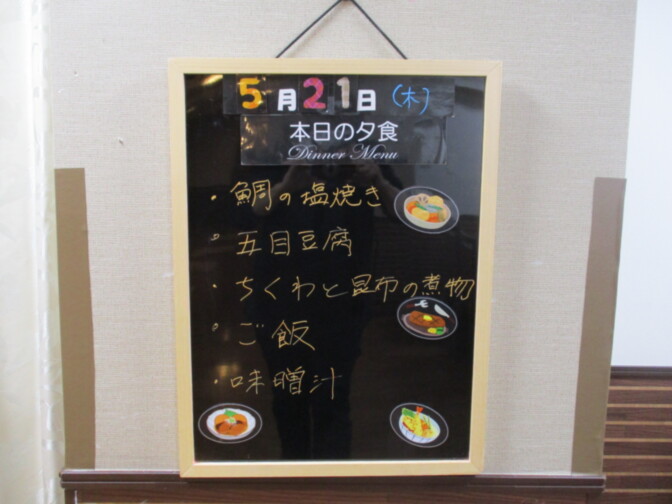 5月21日(木)
本日の夕食
Dinner Menu
・鯛の塩焼き
・五目豆腐
・ちくわと昆布の煮物
・ご飯
・味噌汁